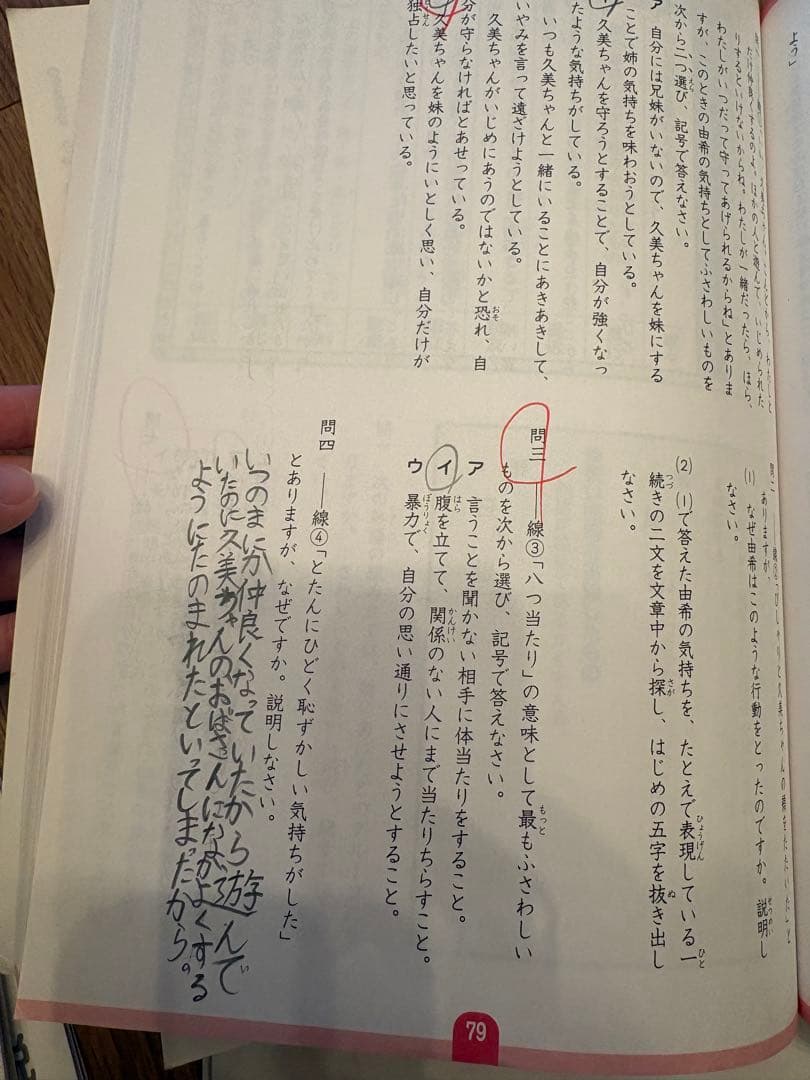 よう」
りするといけないからね。わたしが一緒だったら、ほら、
わたしがいつだって守ってあげられるからね」とありま
すが、このときの由希の気持ちとしてふさわしいものを
次から二つ選び、記号で答えなさい。
ア 自分には兄妹がいないので、久美ちゃんを妹にする
ことで姉の気持ちを味わおうとしている。
久美ちゃんを守ろうとすることで、自分が強くなっ
たような気持ちがしている。
いつも久美ちゃんと一緒にいることにあきあきして、
いやみを言って遠ざけようとしている。
久美ちゃんがいじめにあうのではないかと恐れ、自
分が守らなければとあせっている。
久美ちゃんを妹のようにいとしく思い、自分だけが
独占したいと思っている。
ありますが、
(1) なぜ由希はこのような行動をとったのですか。説明し
なさい。
(2) (1)で答えた由希の気持ちを、たとえで表現している一
続きの二文を文章中から探し、はじめの五字を抜き出し
なさい。
問三 ――線③「八つ当たり」の意味として最もふさわしい
ものを次から選び、記号で答えなさい。
ア 言うことを聞かない相手に体当たりをすること。
イ 腹を立てて、関係のない人にまで当たりちらすこと。
ウ 暴力で、自分の思い通りにさせようとすること。
問四 ――線④「とたんにひどく恥ずかしい気持ちがした」
とありますが、なぜですか。説明しなさい。
いつのまにか仲良くなっていたから遊んで
いたのに久美ちゃんのおばさんになかよくする
ようにたのまれたといってしまったから。
79